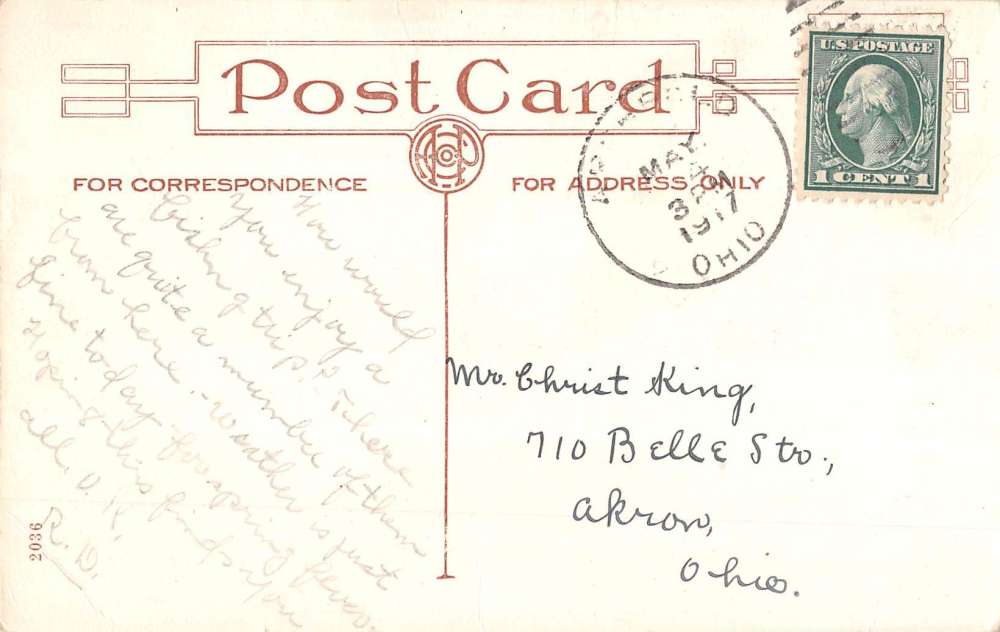 Post Card
FOR CORRESPONDENCE
FOR ADDRESS ONLY
U.S. POSTAGE
1 CENT 1
MAY
3 PM
1917
OHIO
How would
you enjoy a
fishing trip? There
are quite a number of them
from here. - Weather is just
fine today for spring fever.
Hoping this finds you
all O.K.
R. D.
Mr. Christ King,
710 Belle Str.,
Akron,
Ohio.
2036